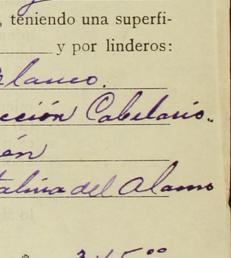 , teniendo una superfi-
y por linderos:
Blanco.
cción Cabelario.
én
talina del Alamo
345.00